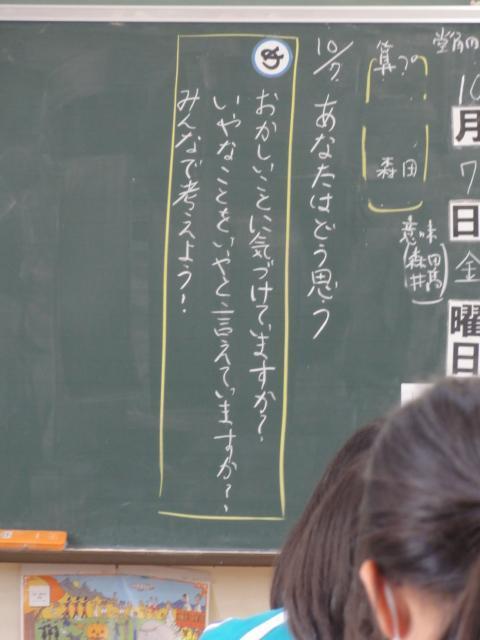 10
月
7
日
金
曜
日
算プロ
森田
意味
森田
井高
10/7 あなたはどう思う
め
おかしいことに気づけていますか?
いやなことをいやと言えていますか?
みんなで考えよう!